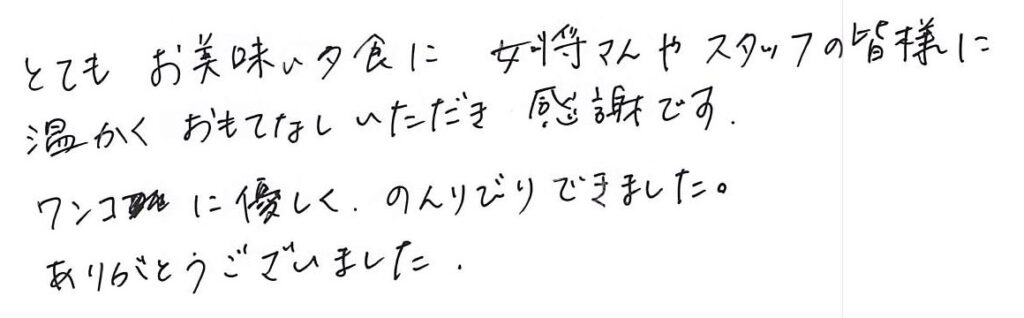 とても お美味い夕食に 女将さんやスタッフの皆様に
温かく おもてなしいただき 感謝です.
ワンコ に優しく. のんりびりできました。
ありがとうございました.